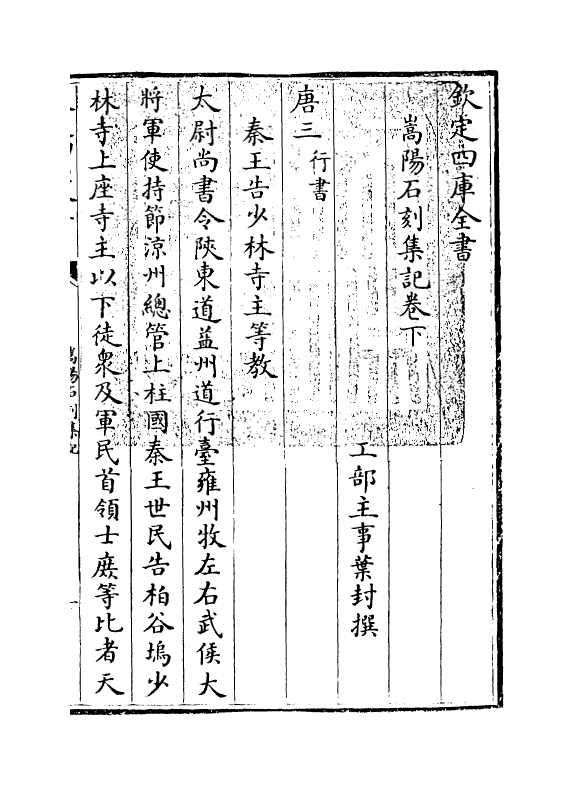 欽定四庫全書
嵩陽石刻集記卷下
工部主事葉封撰
唐三行書
秦王告少林寺主等教
太尉尚書令陝東道益州道行臺雍州牧左右武侯大
將軍使持節涼州總管上柱國秦王世民告柏谷塢少
林寺上座寺主以下徒衆及軍民首領士庶等比者天
嵩陽石刻集記
一